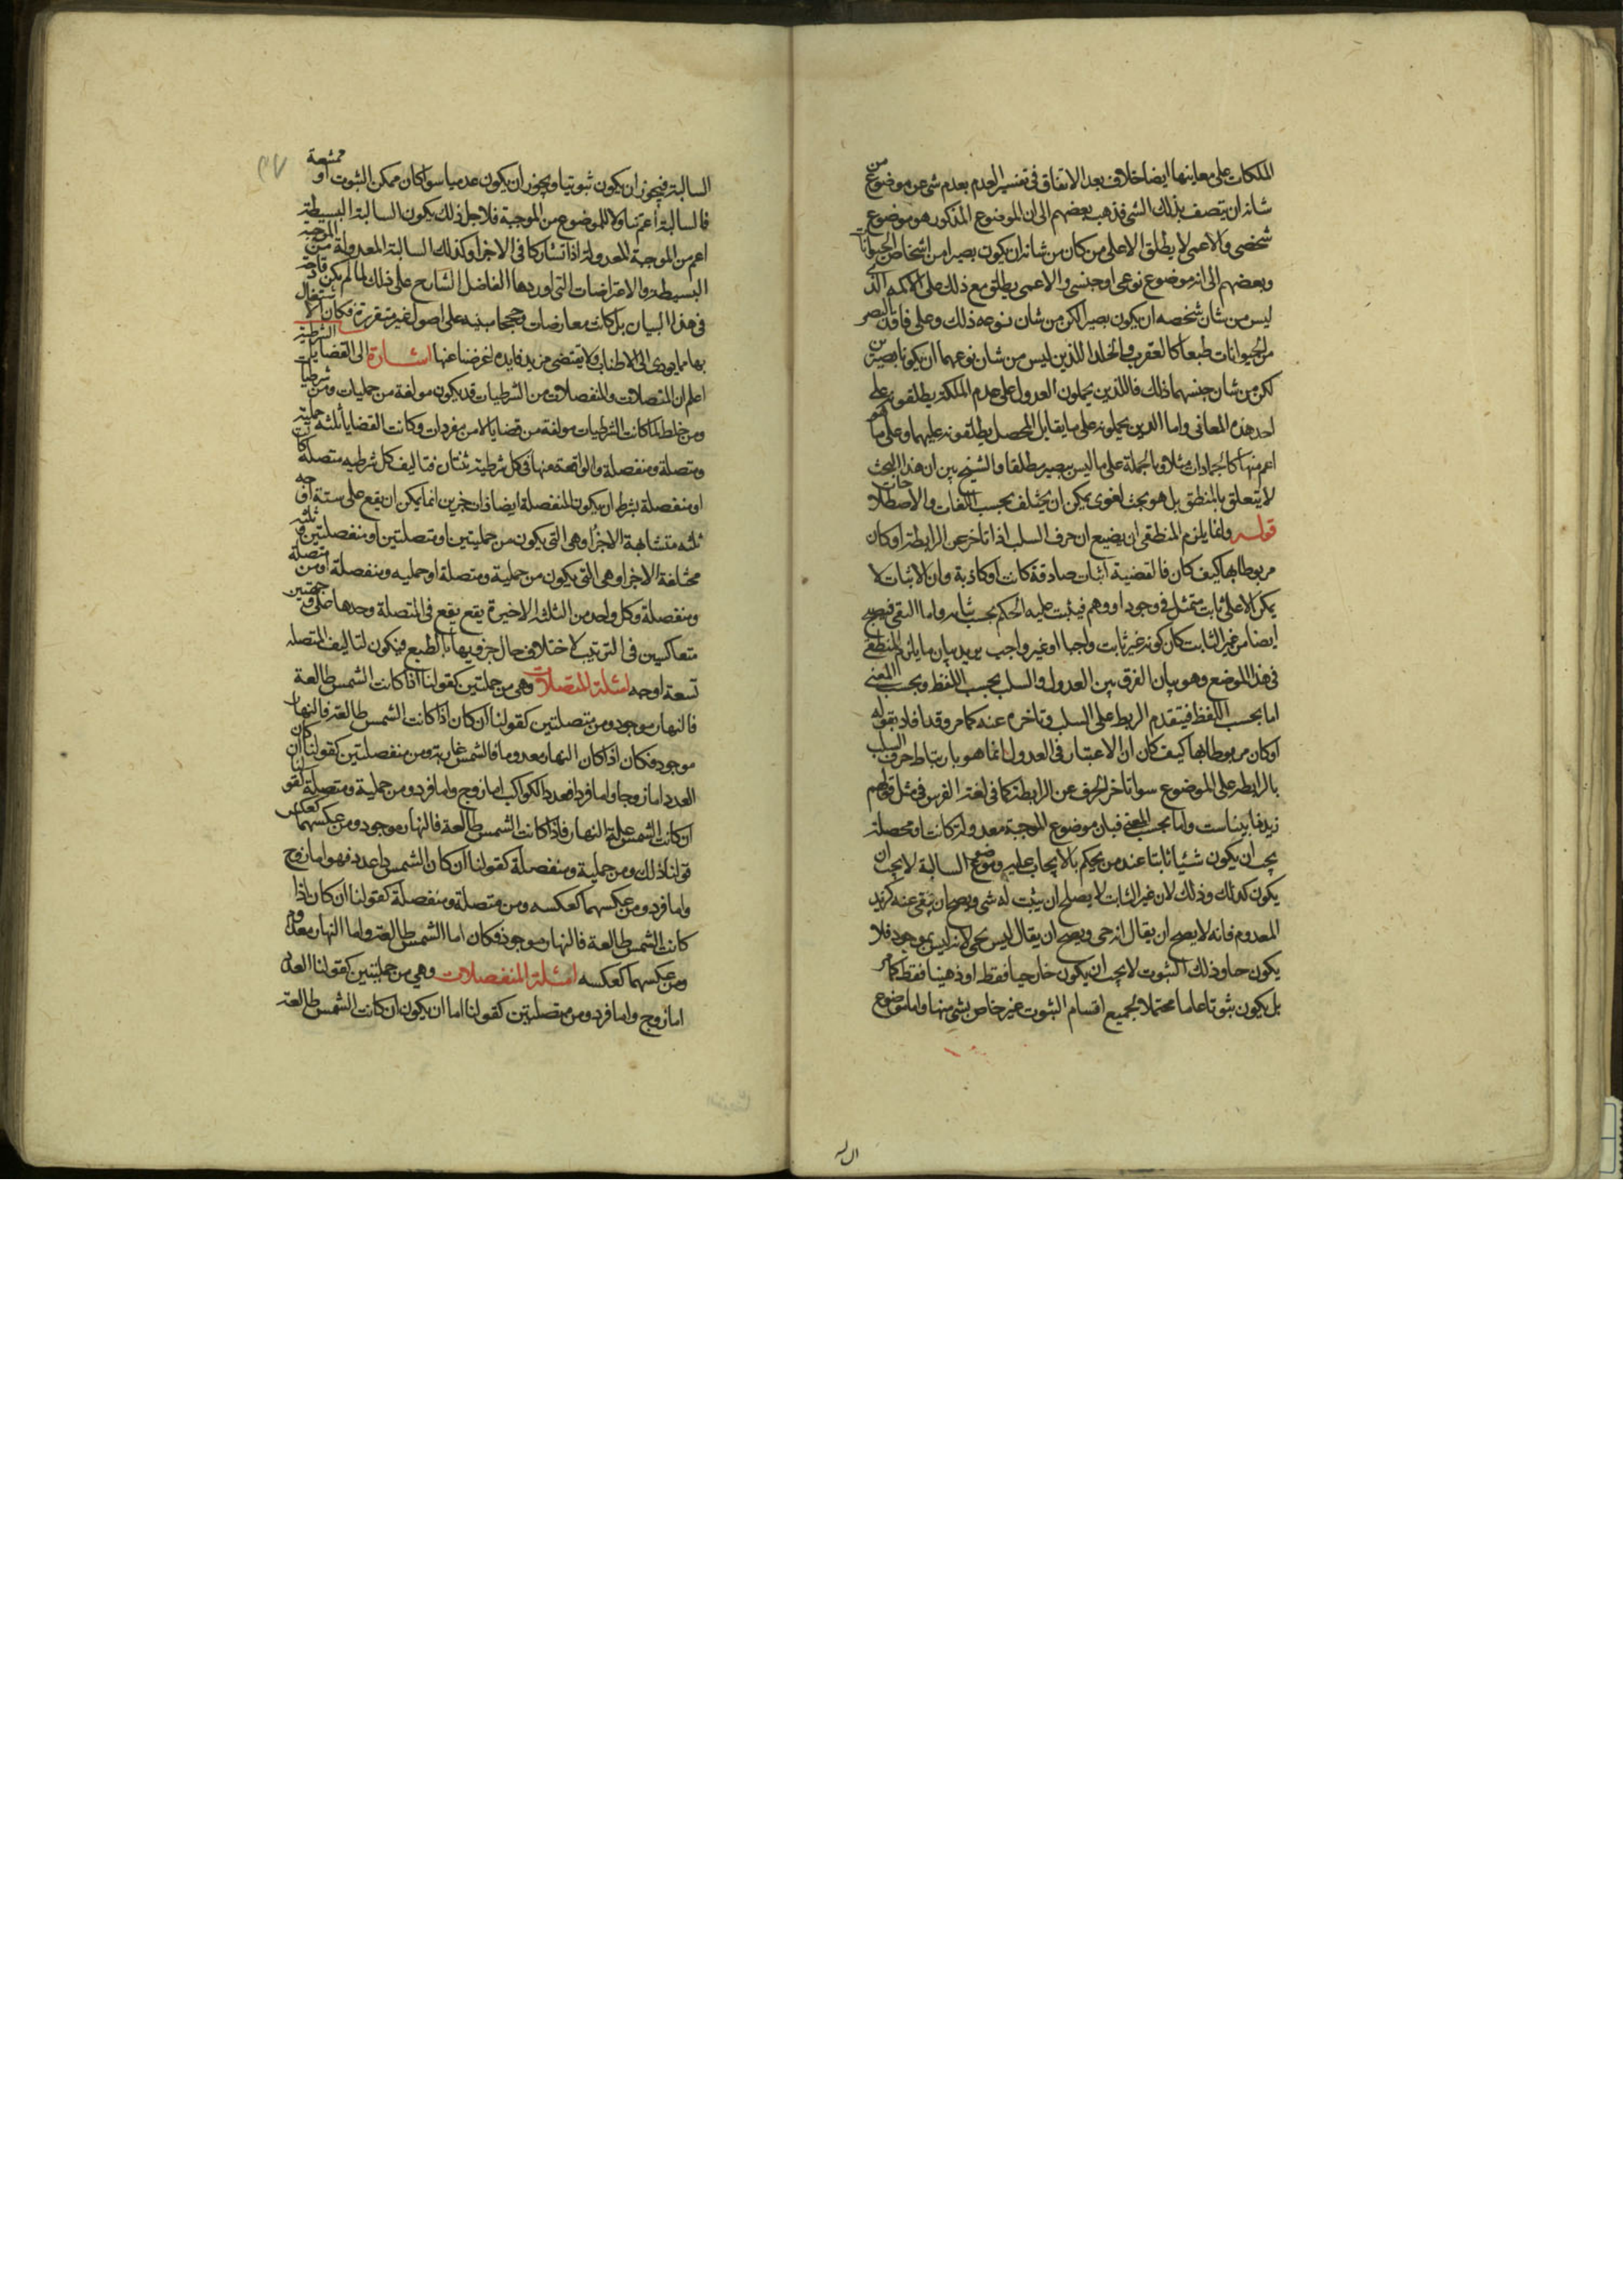 الملكات على معاينها ايضا خلاف بعد الاتفاق فى تفسير العدم بعدم شى عن موضوع من
شانه ان يتصف بذلك الشى فذهب بعضهم الى ان الموضوع المذكور هو موضوع
شخصى والاعمى لا يطلق الا على من كان من شانه ان يكون بصيرا من اشخاص الحيوانات
وبعضهم الى انه موضوع نوعى او جنسى والاعمى يطلق مع ذلك على الاكمه الذى
ليس من شان شخصه ان يكون بصيرا لكن من شان نوعه ذلك وعلى فاقد البصر
من الحيوانات طبعا كالعقرب والخلد اللذين ليس من شان نوعهما ان يكونا بصيرين
لكن من شان جنسهما ذلك فاللذين يحملون العدول على عدم الملكة يطلقونه على
احد هذه المعانى واما الذين يحملونه على ما يقابل المحصل يطلقونه عليهما وعلى ما هو
اعم منها كالجمادات مثلا وبالجملة على ما ليس ببصير مطلقا والشيخ بين ان هذا البحث
لا يتعلق بالمنطق بل هو بحث لغوى يمكن ان يختلف بحسب اللغات والاصطلاحات
قوله وانما يلزم المنطقى ان يضيع ان حرف السلب اذا تاخر عن الرابطة او كان
مربوطا بها كيف كان فالقضية اثبات صادقة كانت او كاذبة وان الاثبات لا
يمكن الا على ثابت متمثل فى وجود او وهم فيثبت عليه الحكم بحسب ثباته واما النفى فيصح
ايضا من غير الثابت كان كونه غير ثابت واجبا او غير واجب يريد بيان ما يلزم المنطقى
فى هذا الموضع وهو بيان الفرق بين العدول والسلب بحسب اللفظ وبحسب المعنى
اما بحسب اللفظ فيتقدم الربط على السلب وتاخره عنه كما مر وقد افاد بقوله
او كان مربوطا بها كيف كان ان الاعتبار فى العدول انما هو بارتباط حرف السلب
بالرابطة على الموضوع سوا تاخر الحرف عن الرابطة كما فى لغة الفرس فى مثل قولهم
زيد نابيناست واما بحسب المعنى فبان موضوع الموجبة معدولة كانت او محصلة
يجب ان يكون شيئا ثابتا عند من يحكم بالايجاب عليه وموضوع السالبة لا يجب ان
يكون كذلك وذلك لان غير الثابت لا يصلح ان يثبت له شى ويصح ان ينفى عنه كزيد
المعدوم فانه لا يصح ان يقال انه حى ويصح ان يقال ليس بحى لانه ليس بموجود فلا
يكون حيا وذلك الثبوت لا يجب ان يكون خارجيا فقط او ذهنيا فقط كما مر
بل يكون ثبوتا عاما محتملا لجميع اقسام الثبوت غير خاص بشى منها واما موضوع
السالبة فيجوز ان يكون ثبوتيا ويجوز ان يكون عدميا سوا كان ممكن الثبوت او ممتنعة
فالسالبة اعم تناولا للموضوع من الموجبة فلاجل ذلك يكون السالبة البسيطة
اعم من الموجبة المعدولة اذا تشاركا فى الاجزا وكذلك السالبة المعدولة من الموجبة
البسيطة والاعتراضات التى اوردها الفاضل الشارح على ذلك لما لم يكن قادحة
فى هذا البيان بل كانت معارضات وحججا مبنيه على اصول غير متقررة وكان الاشتغال
بها مما يودى الى الاطناب ولا يقتضى مزيد فايده اعرضنا عنها اشارة الى القضايا الشرطية
اعلم ان المتصلات والمنفصلات من الشرطيات قد يكون مولفة من حمليات ومن شرطيات
ومن خلط لما كانت الشرطيات مولفة من قضايا لا من مفردات وكانت القضايا ثلثه حملية
ومتصلة ومنفصلة والواقعة منها فى كل شرطية ثنتان فتاليف كل شرطيه متصلة كانت
او منفصلة بشرط ان يكون المنفصلة ايضا ذات جزين انما يمكن ان يقع على ستة اوجه
ثلثه متشابهة الاجزا وهى التى يكون من حمليتين او متصلتين او منفصلتين وثلثه
مختلفة الاجزا وهى التى يكون من حملية ومتصلة او حمليه ومنفصلة او من متصلة
ومنفصلة وكل واحد من الثلثه الاخيرة يقع يقع فى المتصلة وحدها على وجهين
متعاكسين فى الترتيب لاختلاف حال جزويها بالطبع فيكون لتاليف المتصله
تسعة اوجه امثلة المتصلات وهى من حمليتين كقولنا اذا كانت الشمس طالعة
فالنهار موجود ومن متصلتين كقولنا ان كان اذا كانت الشمس طالعة فالنهار
موجود فكان اذا كان النهار معدوما فالشمس غاربة ومن منفصلتين كقولنا ان كان
العدد اما زوجا واما فردا فعدد الكواكب اما زوج واما فرد ومن حملية ومتصلة كقولنا
ان كانت الشمس علة النهار فاذا كانت الشمس طالعة فالنهار موجود ومن عكسهما كعكس
قولنا ذلك ومن حملية ومنفصلة كقولنا ان كان الشمس ذا عدد فهو اما زوج
واما فرد ومن عكسهما كعكسه ومن متصلة ومنفصلة كقولنا ان كان اذا
كانت الشمس طالعة فالنهار موجود فكان اما الشمس طالعة واما النهار معدوم
ومن عكسهما كعكسه امثلة المنفصلات وهى من حمليتين كقولنا العدد
اما زوج واما فرد ومن متصلتين كقولنا اما ان يكون ان كانت الشمس طالعة